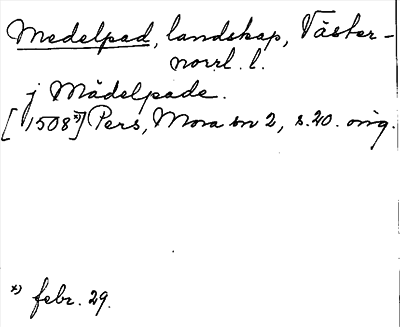 Medelpad, landskap, Väster-
norrl. l.
j Mädelpade.
[1508*)] Pers, Mora sn 2, s. 20. orig.
*) febr. 29.